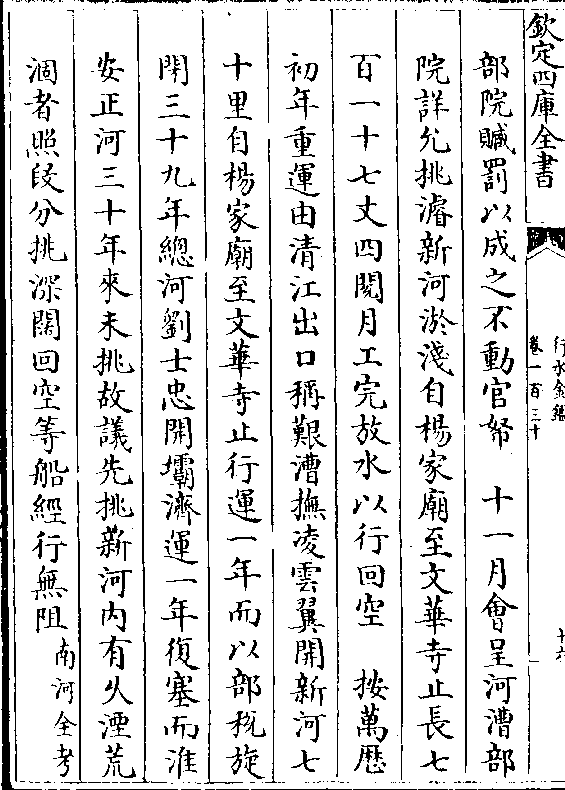 欽定四庫全書
行水金鑑
卷一百三十
十六
部院贓罰以成之不動官帑　十一月會呈河漕部
院詳允挑濬新河淤淺自楊家廟至文華寺止長七
百一十七丈四閱月工完放水以行回空　按萬歷
初年重運由清江出口稱艱漕撫凌雲翼開新河七
十里自楊家廟至文華寺止行運一年而以部稅旋
閉三十九年總河劉士忠開壩濟運一年復塞而淮
安正河三十年來未挑故議先挑新河内有乆湮荒
涸者照段分挑深闊回空等船經行無阻南河全考